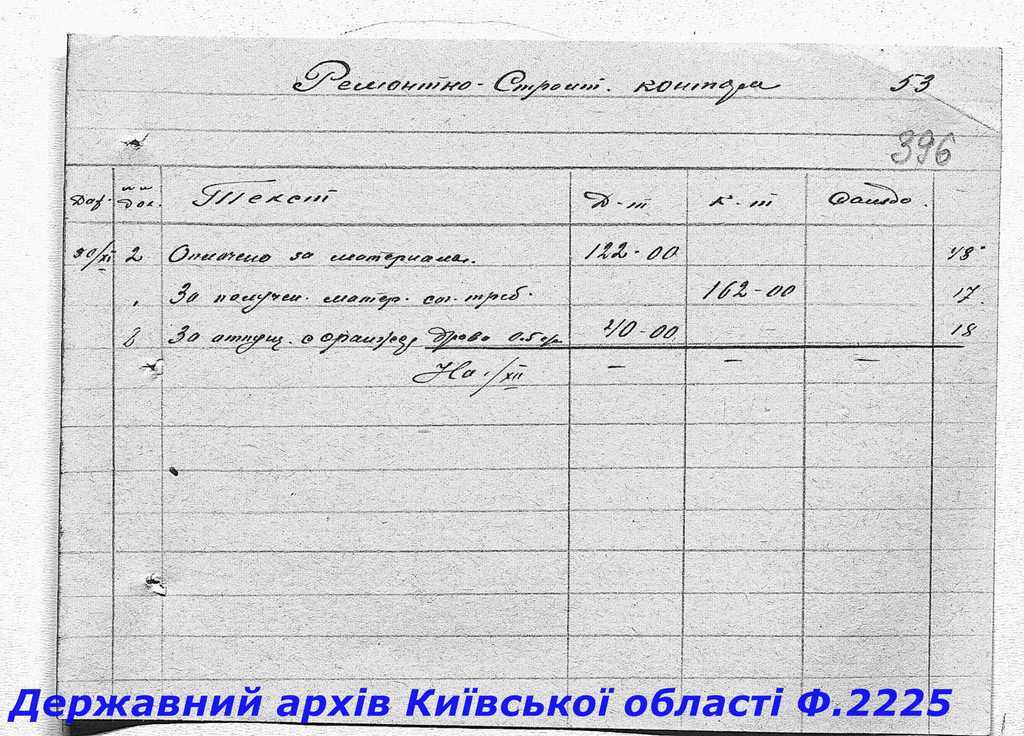 Ремонтно-Строит. контора 53
396
Дат. №№ док. Текст Д-т К-т Сальдо.
30/XI 2 Оплачено за материалы. 122-00 48
За получен. матер. сог. треб. 162-00 17.
8 За отпущ. с оранжер. дрова 0.5 40-00 18
На 1/XII — — —
Державний архів Київської області Ф.2225